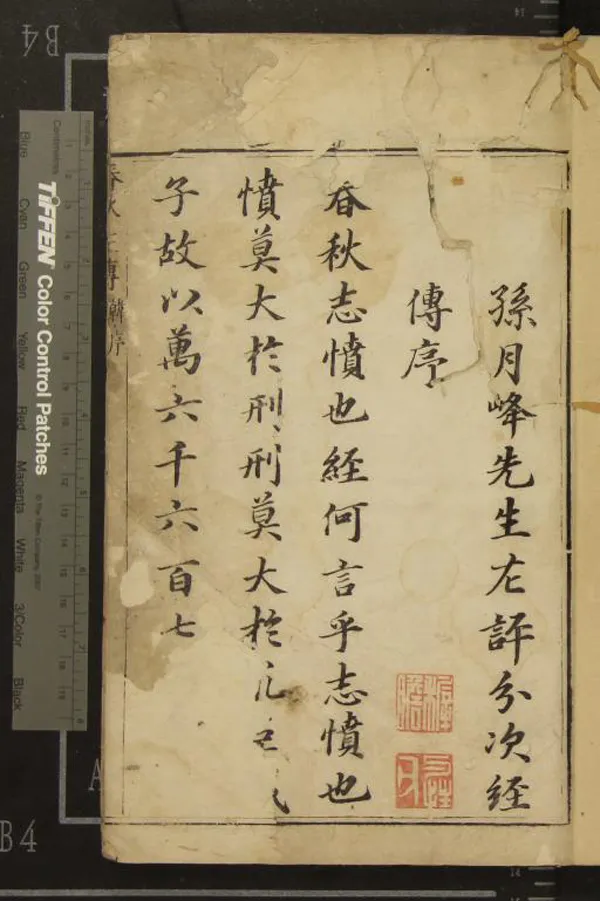 孫月峰先生左評分次経
傳序
春秋志憤也経何言乎志憤也
憤莫大扵刑刑莫大扵
子故以萬六千六百七
春秋左傳 序
B4
TIFFEN Color Control Patches
© The Tiffen Company, 2007
Centimetres
Inches
Blue
Cyan
Green
Yellow
Red
Magenta
White
3/Color
Black
A
B4